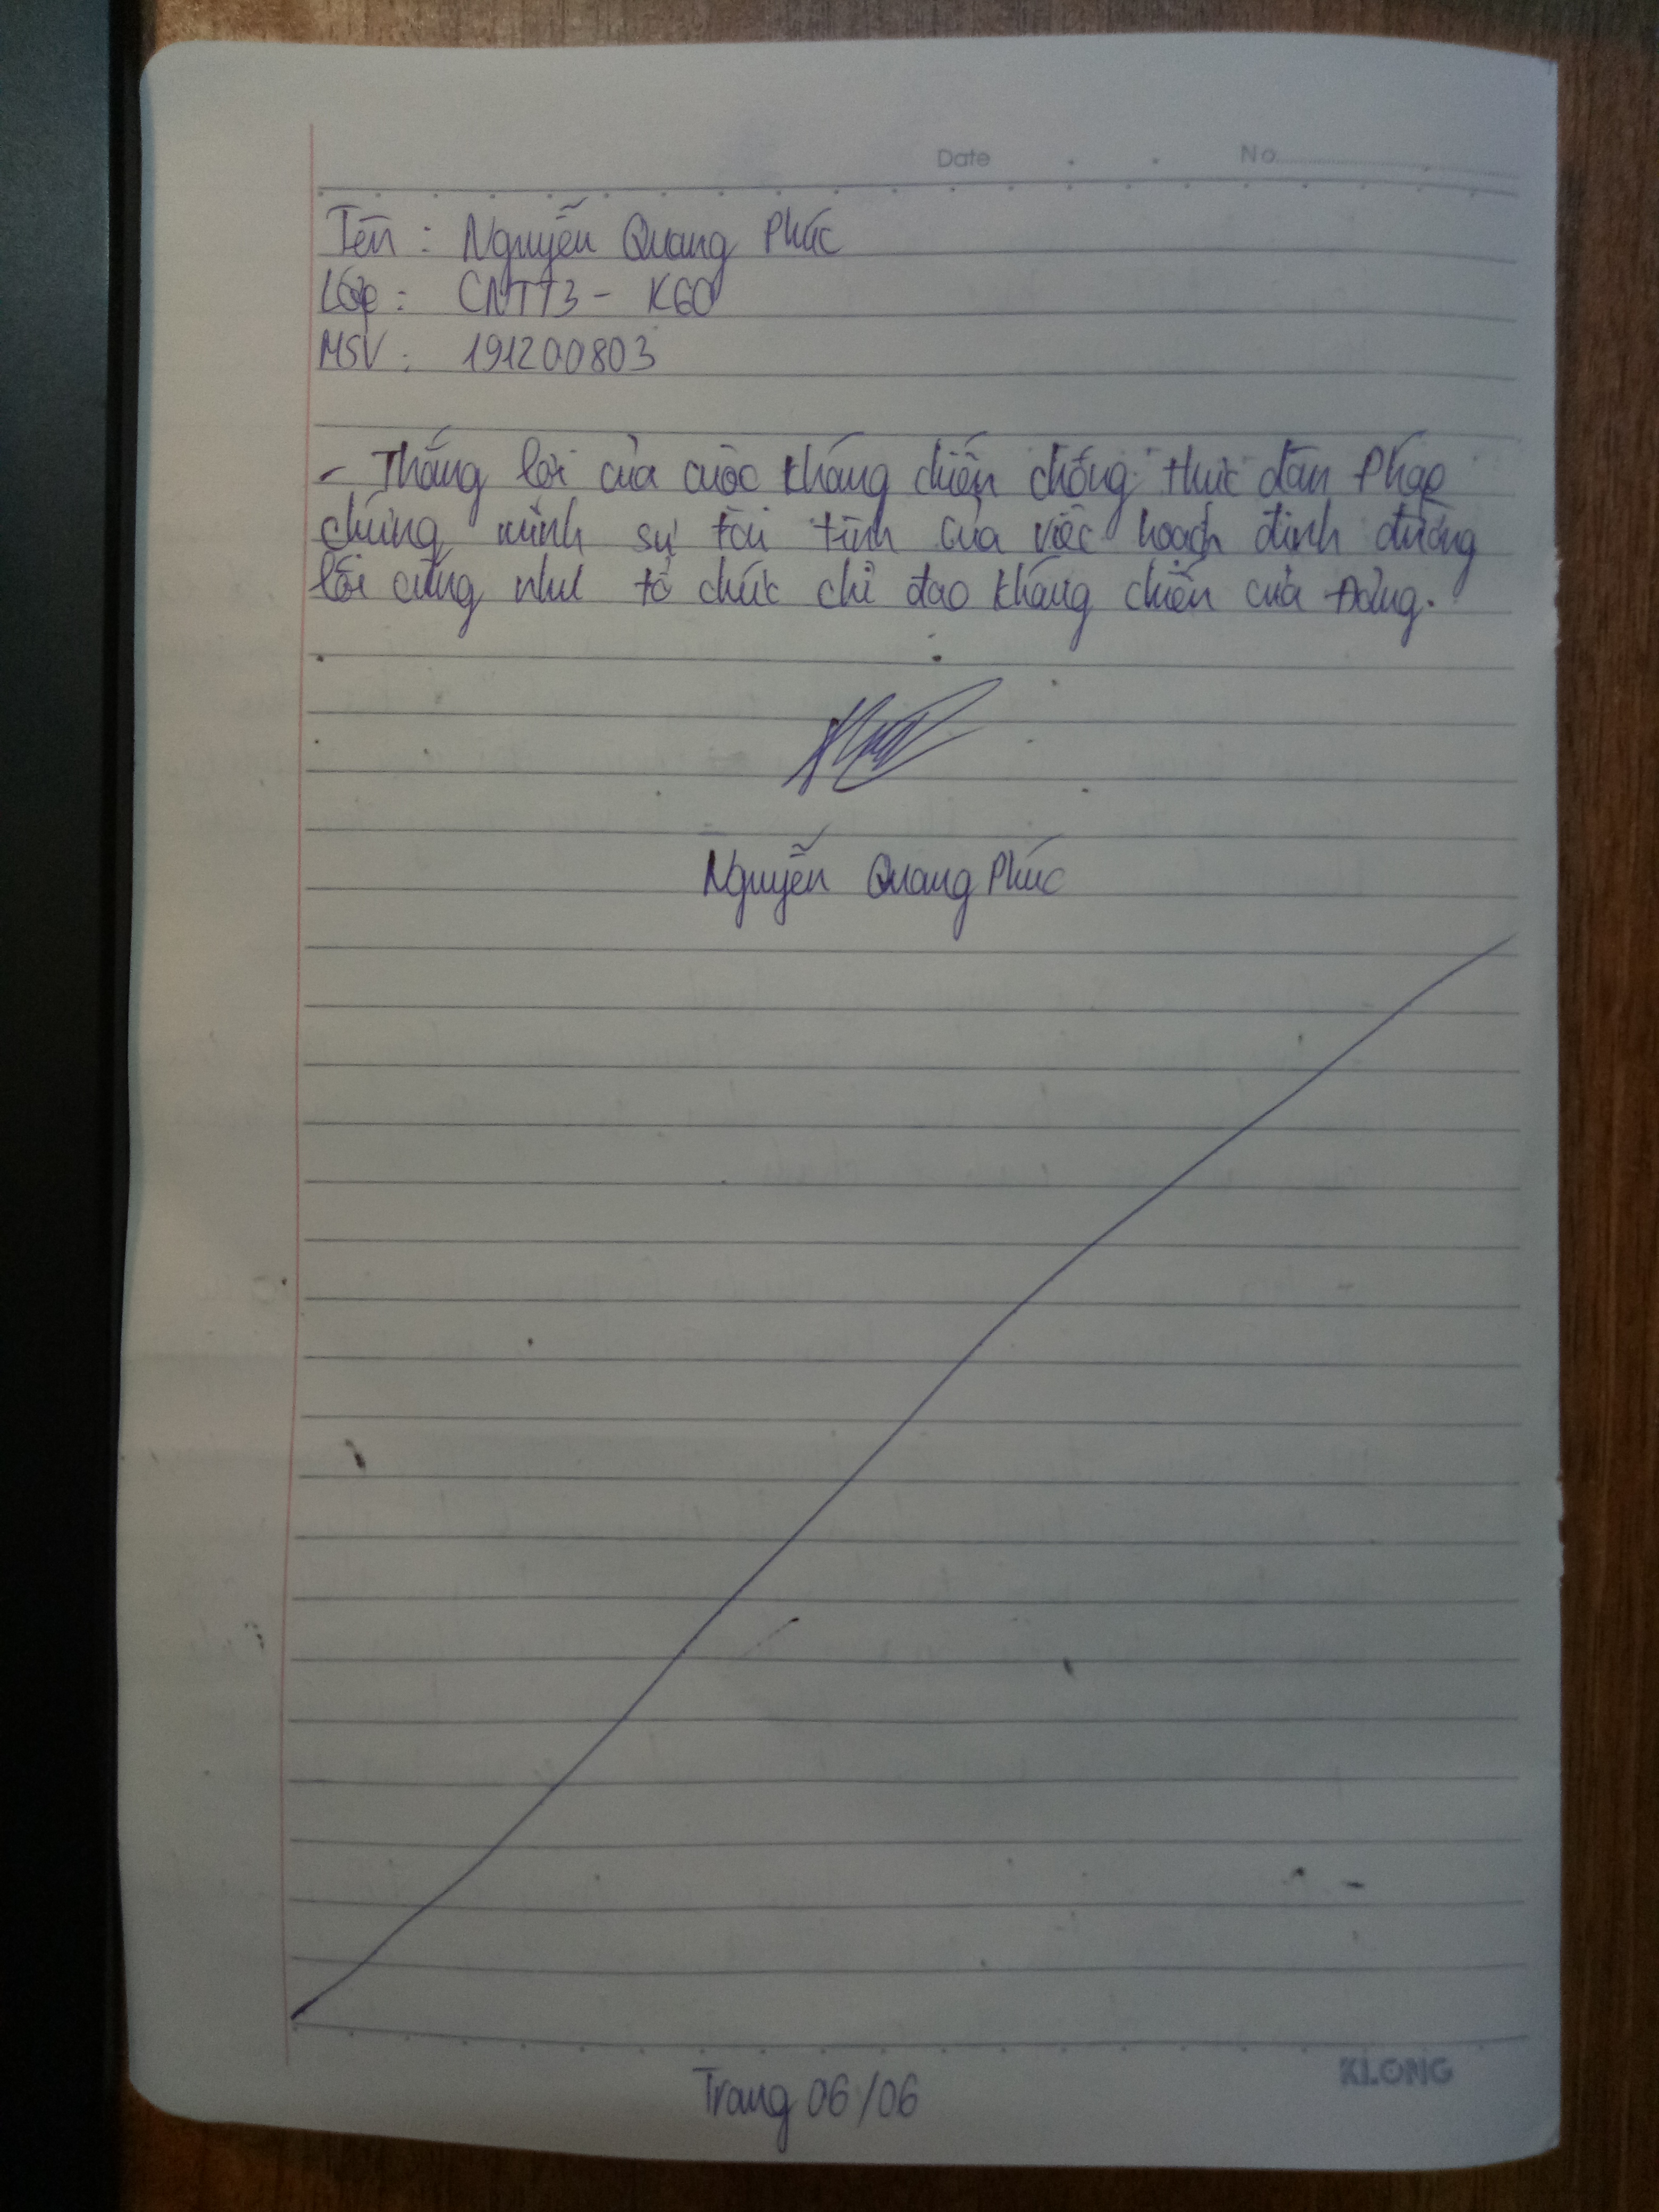 Date . . No
Tên : Nguyễn Quang Phúc
Lớp : CNTT3 - K60
MSV : 191200803
- Thắng lợi của cuộc kháng chiến chống thực dân Pháp
chứng minh sự tài tình của việc hoạch định đường
lối cũng như tổ chức chỉ đạo kháng chiến của Đảng.
Nguyễn Quang Phúc
Trang 06/06
KLONG